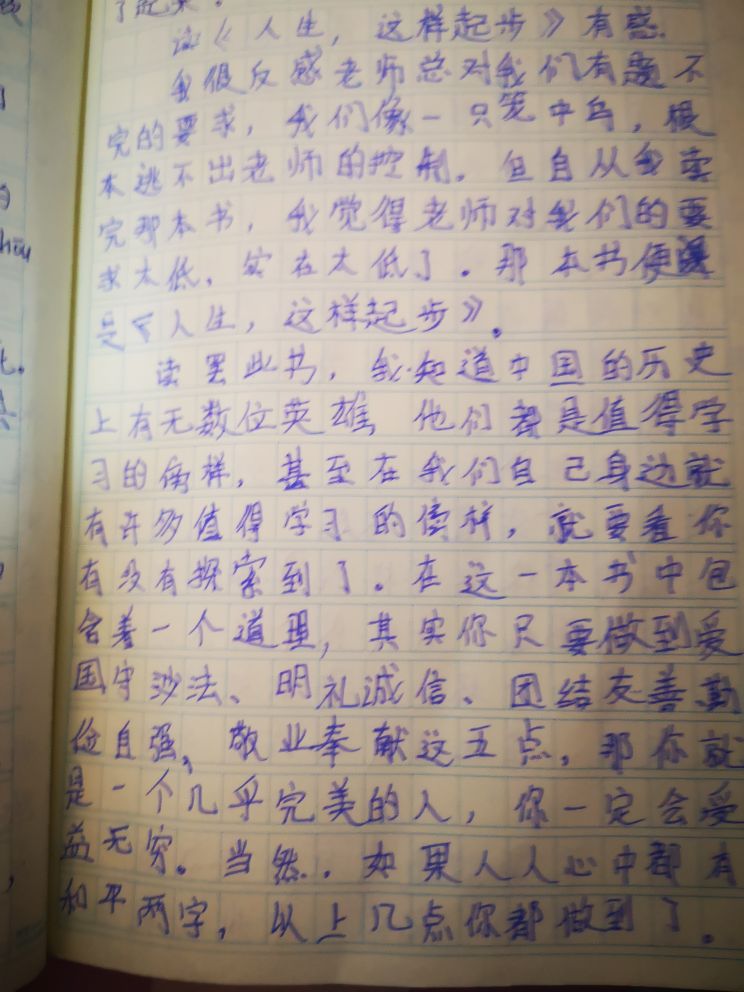 了起来。
读《人生，这样起步》有感
我很反感老师总对我们有提不
完的要求，我们像一只笼中鸟，根
本逃不出老师的控制。但自从我读
完那本书，我觉得老师对我们的要
求太低，实在太低了。那本书便
是《人生，这样起步》。
读罢此书，我知道中国的历史
上有无数位英雄，他们都是值得学
习的榜样，甚至在我们自己身边就
有许多值得学习的榜样，就要看你
有没有探索到了。在这一本书中包
含着一个道理，其实你只要做到爱
国守法、明礼诚信、团结友善、勤
俭自强、敬业奉献这五点，那你就
是一个几乎完美的人，你一定会受
益无穷。当然，如果人人心中都有
和平两字，以上几点你都做到了。